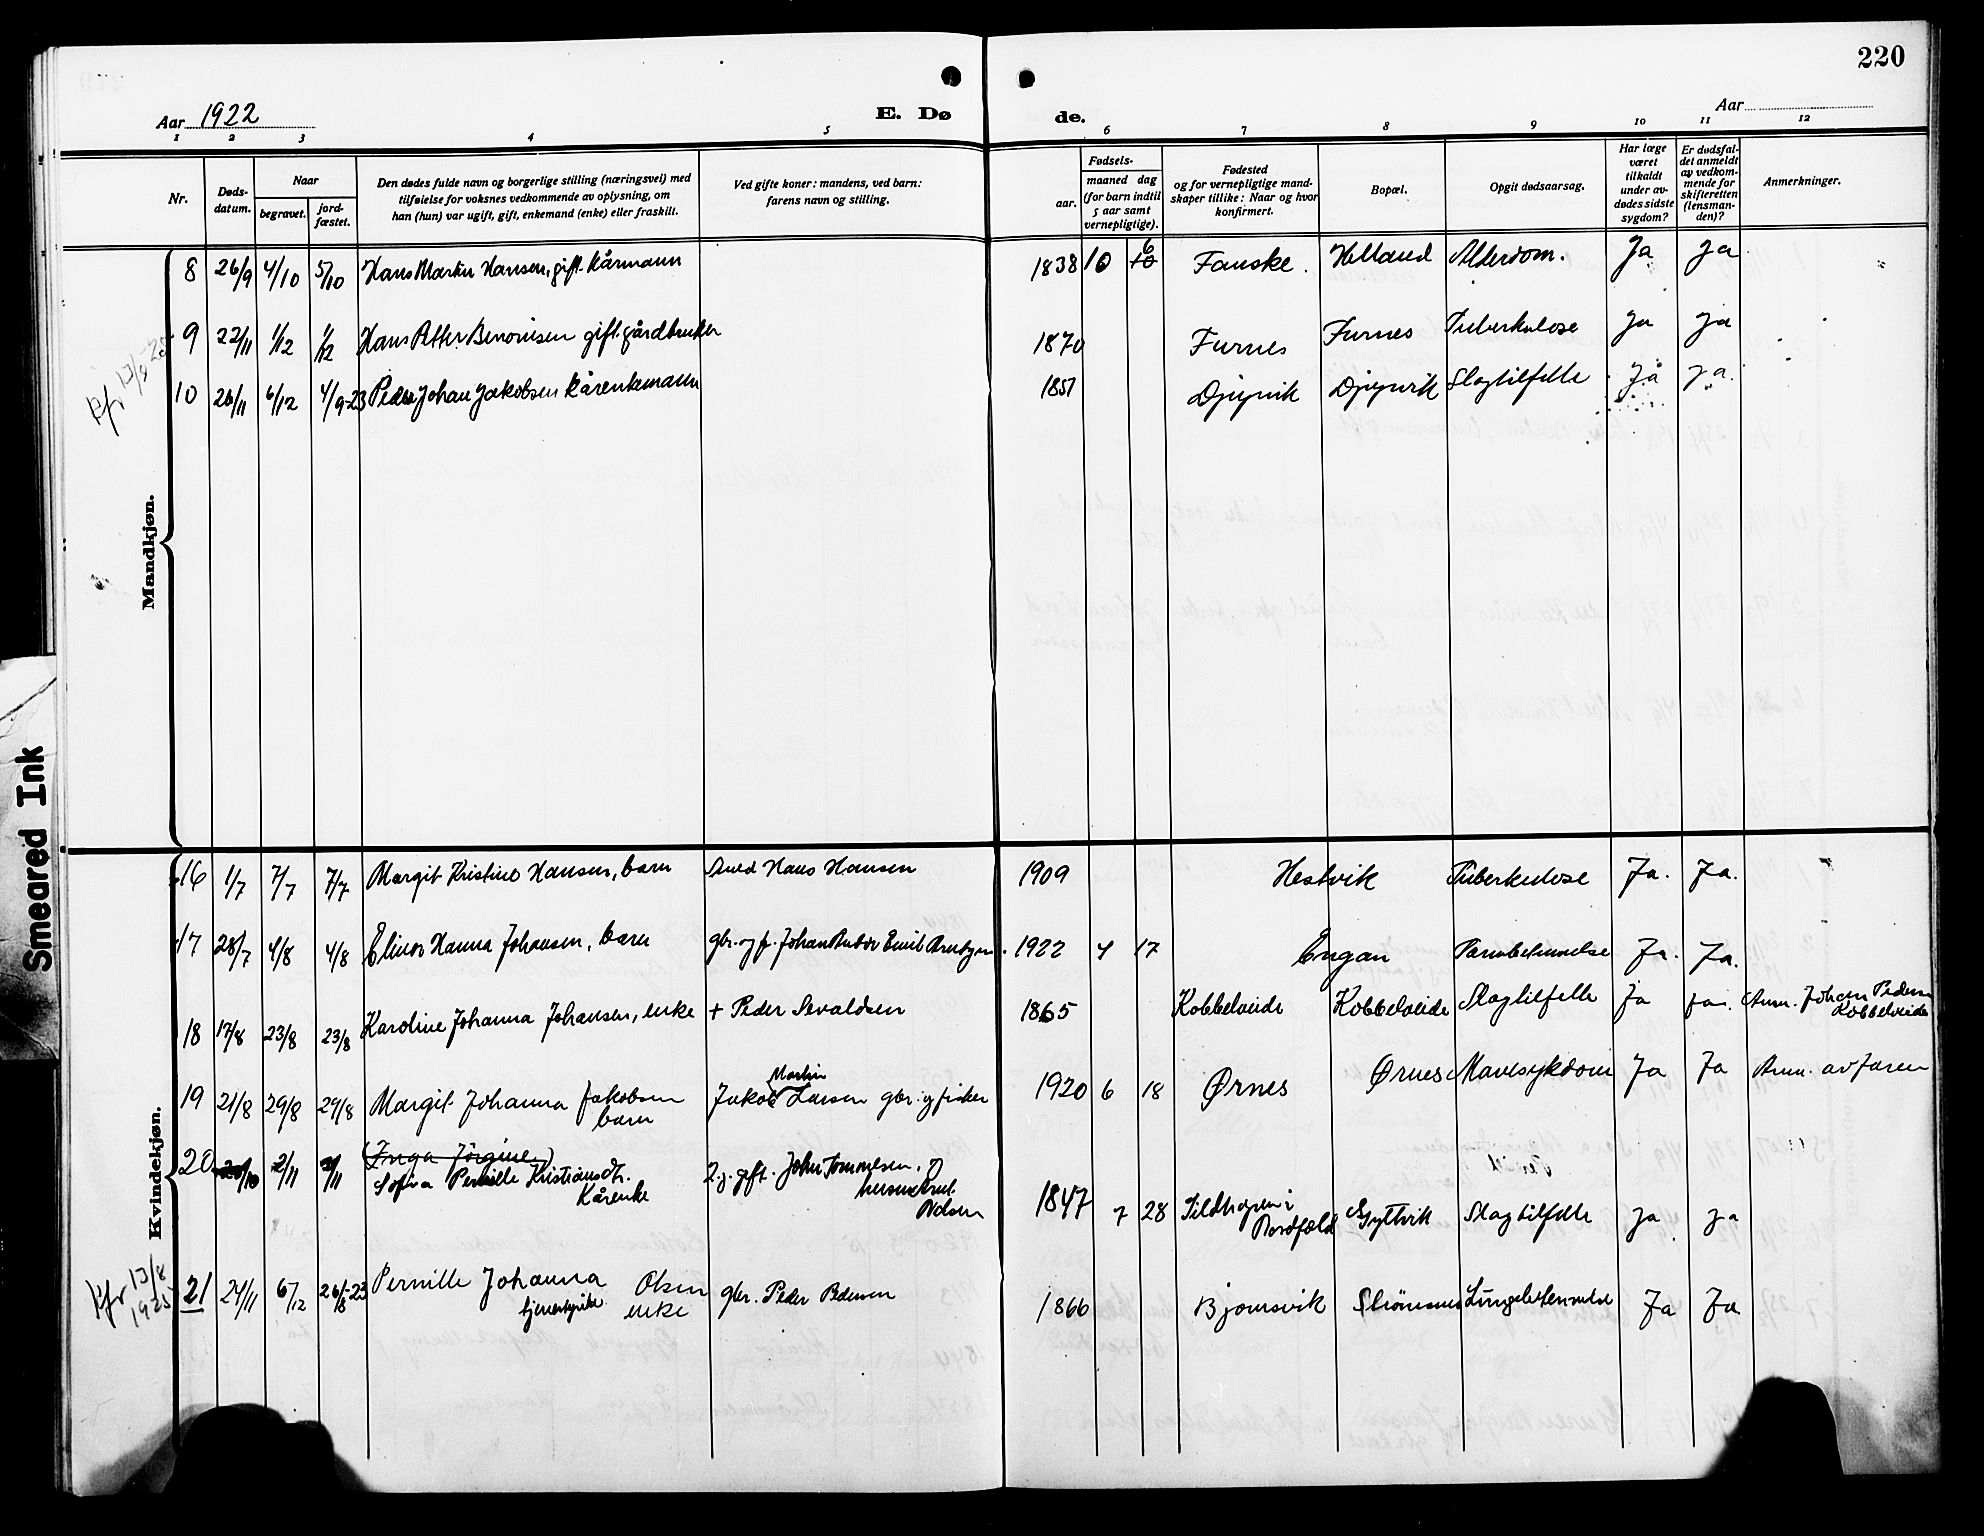 220
Aar 1922
E. Dø de.
Aar
1 2 3 4 5 6 7 8 9 10 11 12
Nr.
Døds-
datum.
Naar
begravet.
jord-
fæstet.
Den dødes fulde navn og borgerlige stilling (næringsvei) med
tilføielse for voksnes vedkommende av oplysning, om
han (hun) var ugift, gift, enkemand (enke) eller fraskilt.
Ved gifte koner: mandens, ved barn:
farens navn og stilling.
Fødsels-
aar.
maaned dag
(for barn indtil
5 aar samt
vernepligtige).
Fødested
og for vernepligtige mand-
skaper tillike: Naar og hvor
konfirmert.
Bopæl.
Opgit dødsaarsag.
Har læge
været
tilkaldt
under av-
dødes sidste
sygdom?
Er dødsfal-
det anmeldt
av vedkom-
mende for
skifteretten
(lensman-
den)?
Anmerkninger.
Mandkjøn.
8 26/9 4/10 5/10 Hans Martin Hansen, gift. kårmann 1838 10 6 Fauske. Helland Alderdom. Ja Ja
9 22/11 1/12 1/12 Hans Petter Benonisen gift. gårdbruker 1870 Furnes Furnes Tuberkulose Ja Ja
kfr 13/8-25
10 26/11 6/12 4/9-23 Peder Johan Jakobsen kårenkemann 1851 Djupvik Djupvik Slagtilfelle Ja Ja.
Kvindekjøn.
16 1/7 7/7 7/7 Margit Kristine Hansen, barn Hans Hansen 1909 Hestvik Tuberkulose Ja. Ja.
17 28/7 4/8 4/8 Elinor Hanna Johansen, barn gbr. og f. Johan Emil 1922 4 17 Engan Ja. Ja.
18 17/8 23/8 23/8 Karoline Johanna Johansen, enke + Peder Sevaldsen 1865 Kobbelveide Kobbelveide Slagtilfelle Ja Ja. Anm. Johan Pedersen
Kobbelveide
19 21/8 29/8 29/8 Margit Johanna Jakobsen Jakob Martin Larsen gbr. og fisker 1920 6 18 Ørnes Ørnes Mavesykdom Ja Ja Anm. av faren
barn
20 /10 2/11 2/11 (Inga Jörgine)
Sofia Pernille Kristiansdtr. 2. g. gift. John Tommesen,
Kårenke
Olsen
1847 7 28 Sildhopen i
Nordfold Gyltvik Slagtilfelle Ja Ja
kfr 13/8
1925
21 24/11 6/12 26/8-23 Pernille Johanna Olsen gbr. Peder Pedersen 1866 Bjørnsvik Strømsnes Lungebetennelse Ja Ja
enke
Smeared Ink